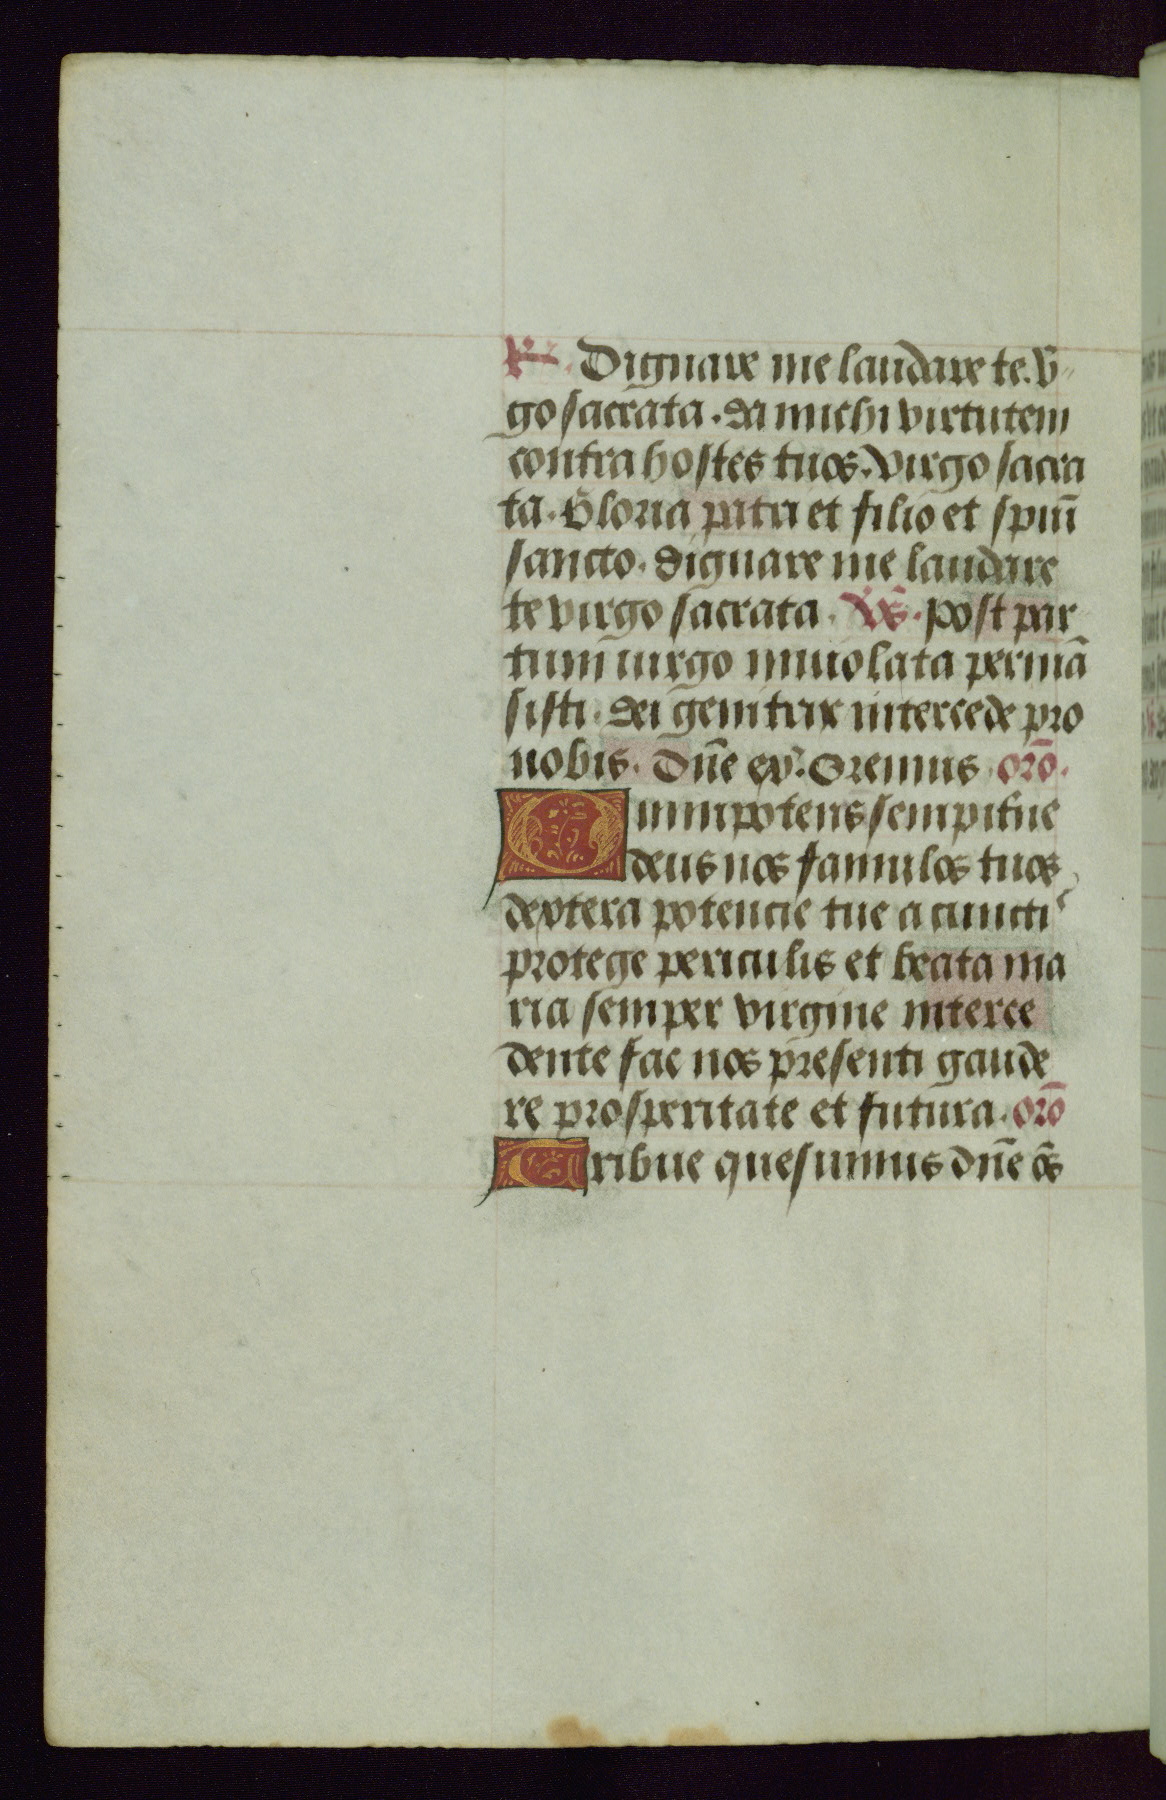 R̃. Dignare me laudare te. v̄
go sacrata. da michi virtutem
contra hostes tuos. Virgo sacra
ta. Gloria patri et filio et spiriū
sancto. dignare me laudare
te virgo sacrata. V̄s. post par
tum uirgo inuiolata permā
sisti. dei genitrix intercede pro
nobis. Dn̄e ex̄. Oremus orō.
Omnipotens sempit̄ne
deus nos famulos tuos
dextera potencie tue a cuncti
protege periculis et beata ma
ria semper virgine interce
dente fac nos presenti gaude
re prosperitate et futura. orō
Tribue quesumus dn̄e ōs